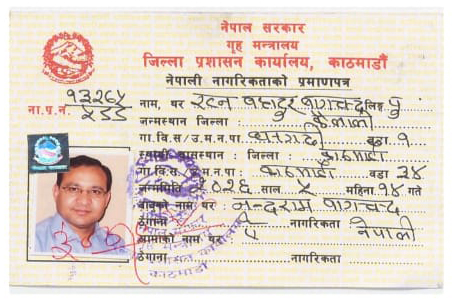 नेपाल सरकार
गृह मन्त्रालय
जिल्ला प्रशासन कार्यालय, काठमाडौं
नेपाली नागरिकताको प्रमाणपत्र
ना.प.नं.
नाम, थर रतन बहादुर बागचन्द लिङ्ग पु
जन्मस्थान : जिल्ला कैलाली
गा.वि.स/उ.म.न.पा. धनगढी वडा १
स्थायी बासस्थान : जिल्ला काठमाडौं
गा.वि.स./उ.म.न.पा. काठमाडौं वडा ३४
जन्ममिति २०२६ साल ५ महिना १४ गते
बाबुको नाम थर नन्दराम बागचन्द
ठेगाना नागरिकता नेपाली
आमाको नाम थर
ठेगाना नागरिकता
काठमाडौं